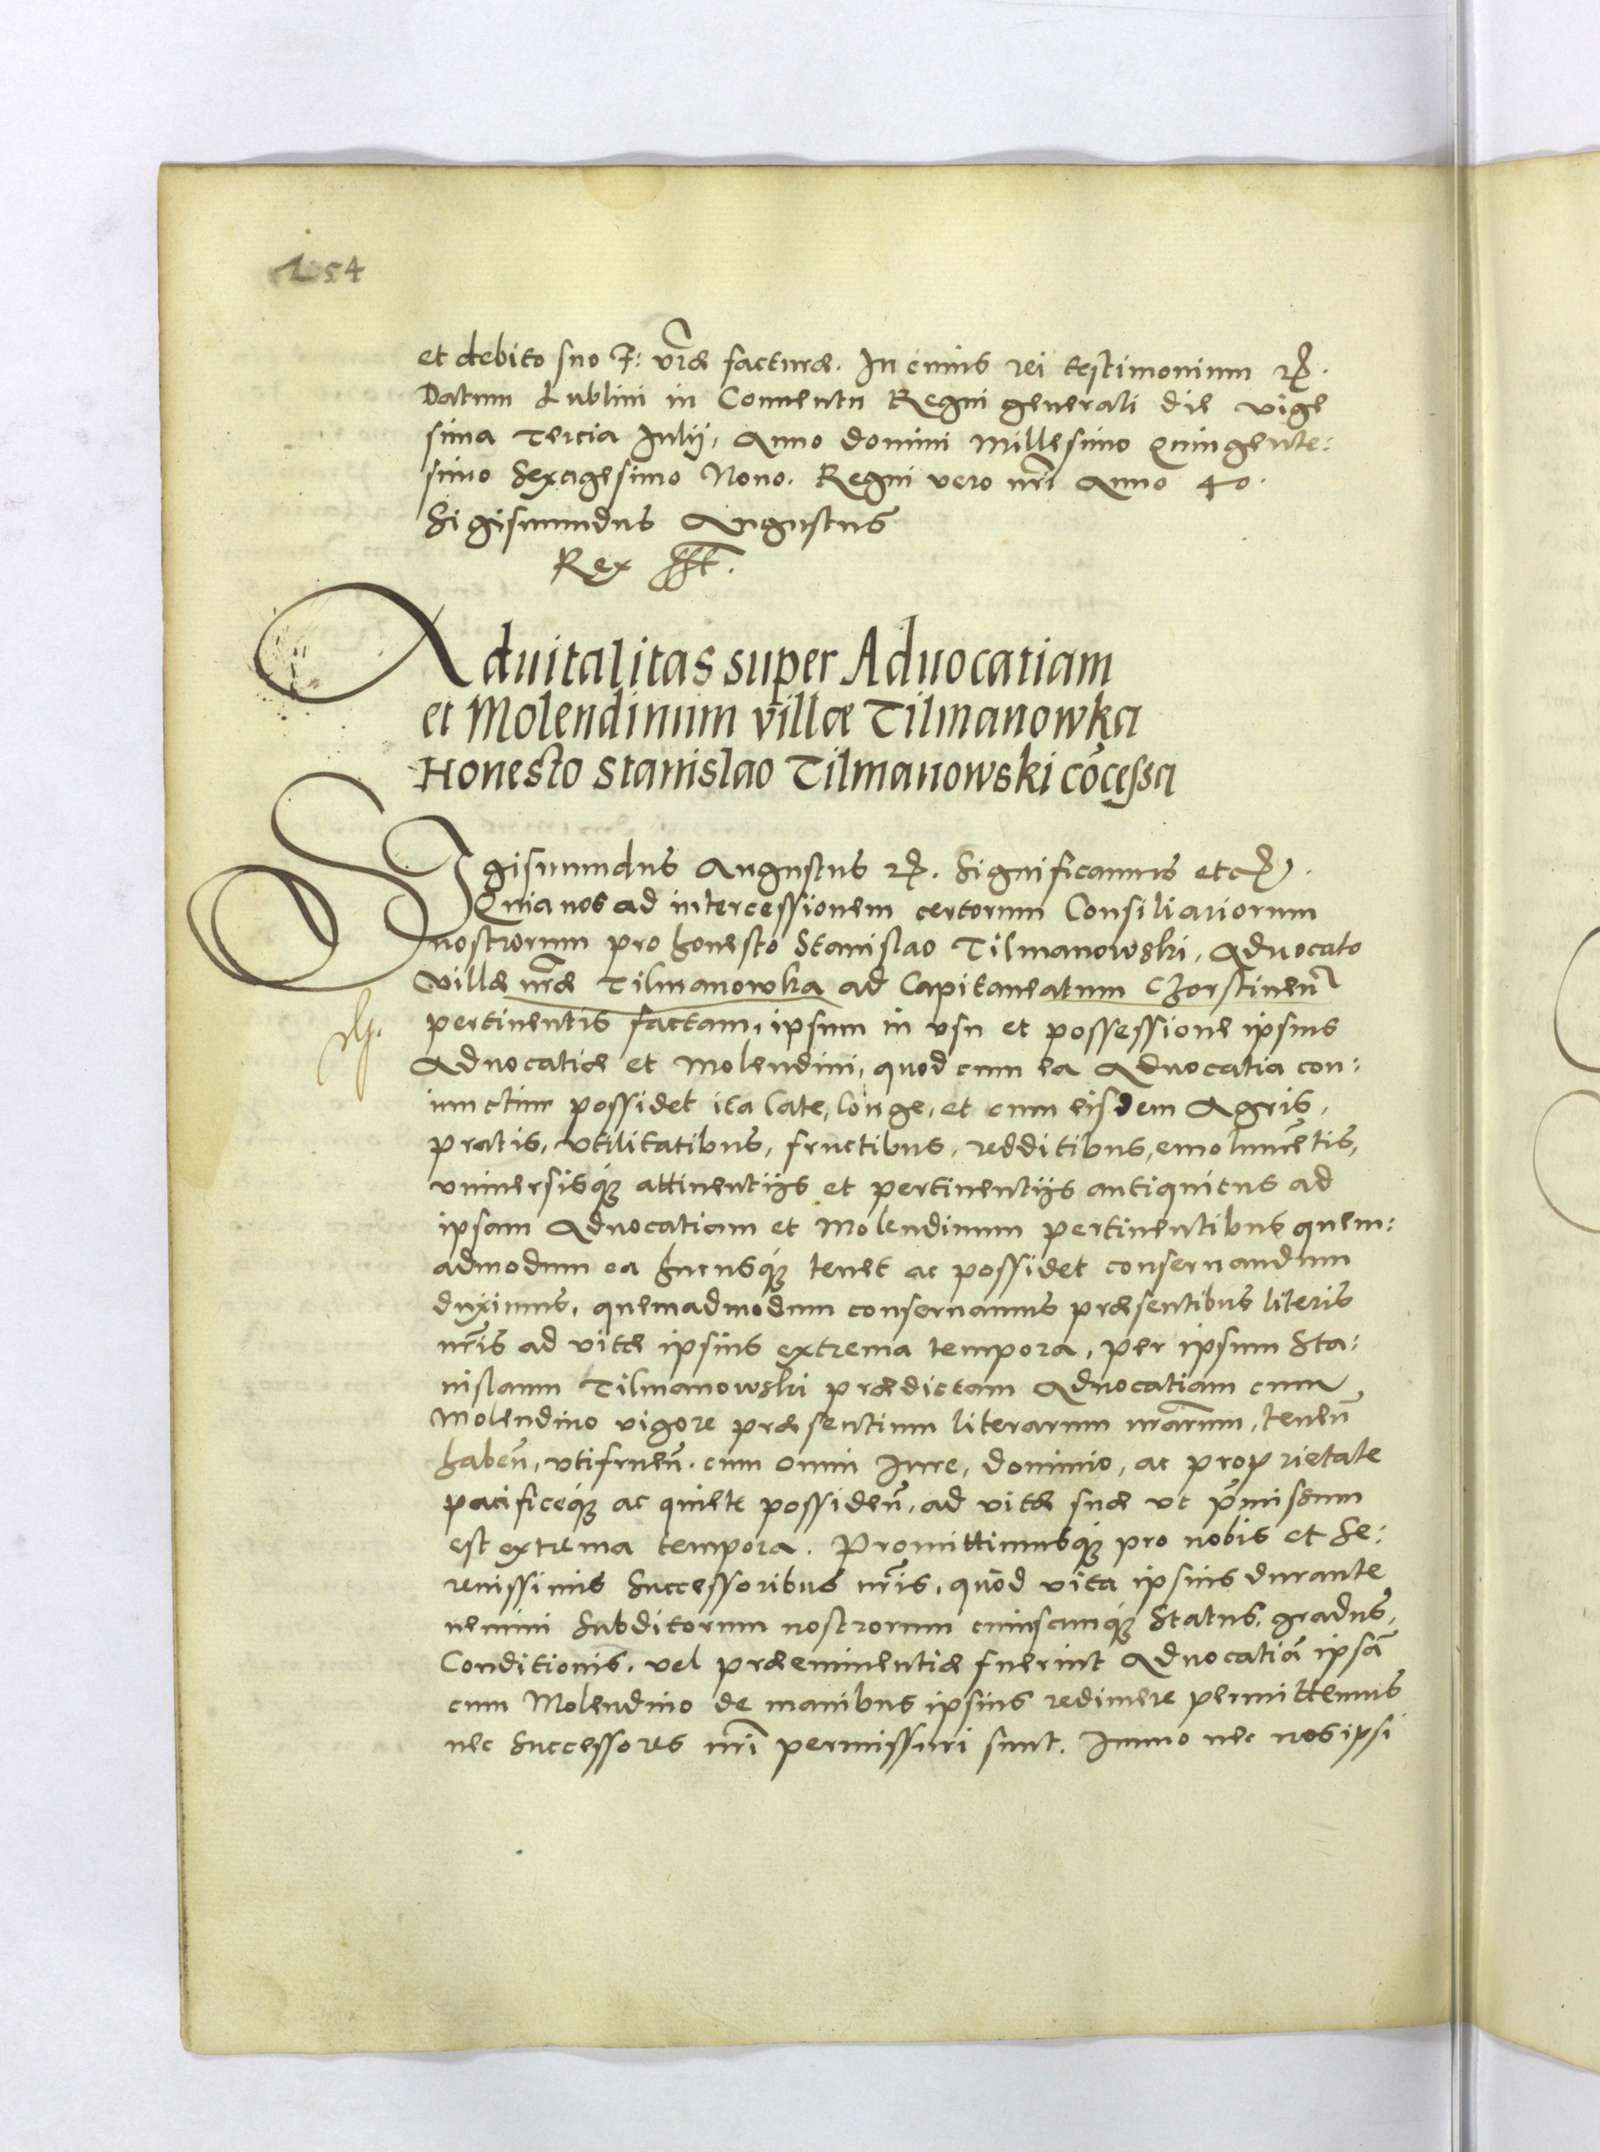 254
et debito suo F: vr̃æ facturæ. In cuius rei testimonium etc.
Datum Lublini in Conuentu Regni generali die vige
sima Tercia Iulij, Anno domini Millesimo Quingente:
simo Sexagesimo Nono. Regni vero nr̃i Anno 40.
Sigismundus Augustus
Rex sst.
Aduitalitas super Aduocatiam
et Molendinum villæ Tilmanowka
Honesto Stanislao Tilmanowski cõcessa
Sigismundus Augustus etc. Significamus etc.
Quia nos ad intercessionem certorum Consiliariorum
nostrorum pro honesto Stanislao Tilmanowski, Aduocato
Villæ nr̃æ Tilmanowka ad Capitaneatum Czorstinen̄
pertinentis factam, ipsum in vsu et possessione ipsius
Aduocatiæ et Molendini, quod cum ea Aduocatia con:
iunctim possidet ita late, longe, et cum eisdem Agris,
pratis, vtilitatibus, fructibus, redditibus, emolumẽtis,
vniuersisq́ꝫ attinentijs et pertinentijs antiquitus ad
ipsam Aduocatiam et Molendinum pertinentibus quem:
admodum ea hucusq́ꝫ tenet ac possidet conseruandum
duximus, quemadmodum conseruamus præsentibus literis
nr̃is ad vitæ ipsius extrema tempora, per ipsum Sta:
nislaum Tilmanowski prædictam Aduocatiam cum
Molendino vigore præsentium literarum nr̃arum, tenen̄
haben̄, vtifruen̄. cum omni Iure, dominio, ac proprietate
pacificeq́ꝫ ac quiete possiden̄, ad vitæ suæ vt p̃missum
est extrema tempora. Promittimusq́ꝫ pro nobis et Se:
renissimis Successoribus nr̃is, quod vita ipsius durante
nemini Subditorum nostrorum cuiuscunq́ꝫ Status, gradus,
Conditionis, vel præeminentiæ fuerint Aduocatiã ipsã
cum Molendino de manibus ipsius redimere permittemus
nec Successores nr̃i permissuri sunt. Immo nec nos ipsi